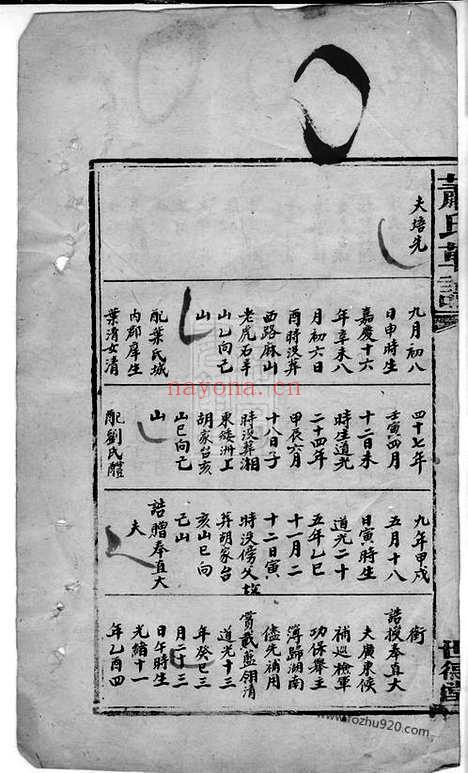 蕭氏草譜
世德堂
夫培先
九月初八
日申時生
嘉慶十六
年辛未八
月初六日
酉時沒葬
西路麻山
老虎石羊
山乙向己
山
配葉氏城
內郡庠生
葉清女清
四十七年
壬寅四月
十二日未
時生道光
二十四年
甲辰六月
十八日子
時沒葬湘
東綾洲工
胡家台亥
山巳向亡
山
配劉氏醴
九年甲戌
五月十八
日寅時生
道光二十
五年乙巳
十一月二
十二日寅
時沒傍父
葬胡家台
亥山巳向
己山
誥贈奉直大
夫
銜
誥授奉直大
夫廣東候
補巡檢軍
功保舉主
簿歸湖南
儘先補用
賞戴藍翎清
道光十三
年癸巳三
月二十三
日午時生
光緒十一
年乙酉四
nayona.cn
www.fozhu920.com